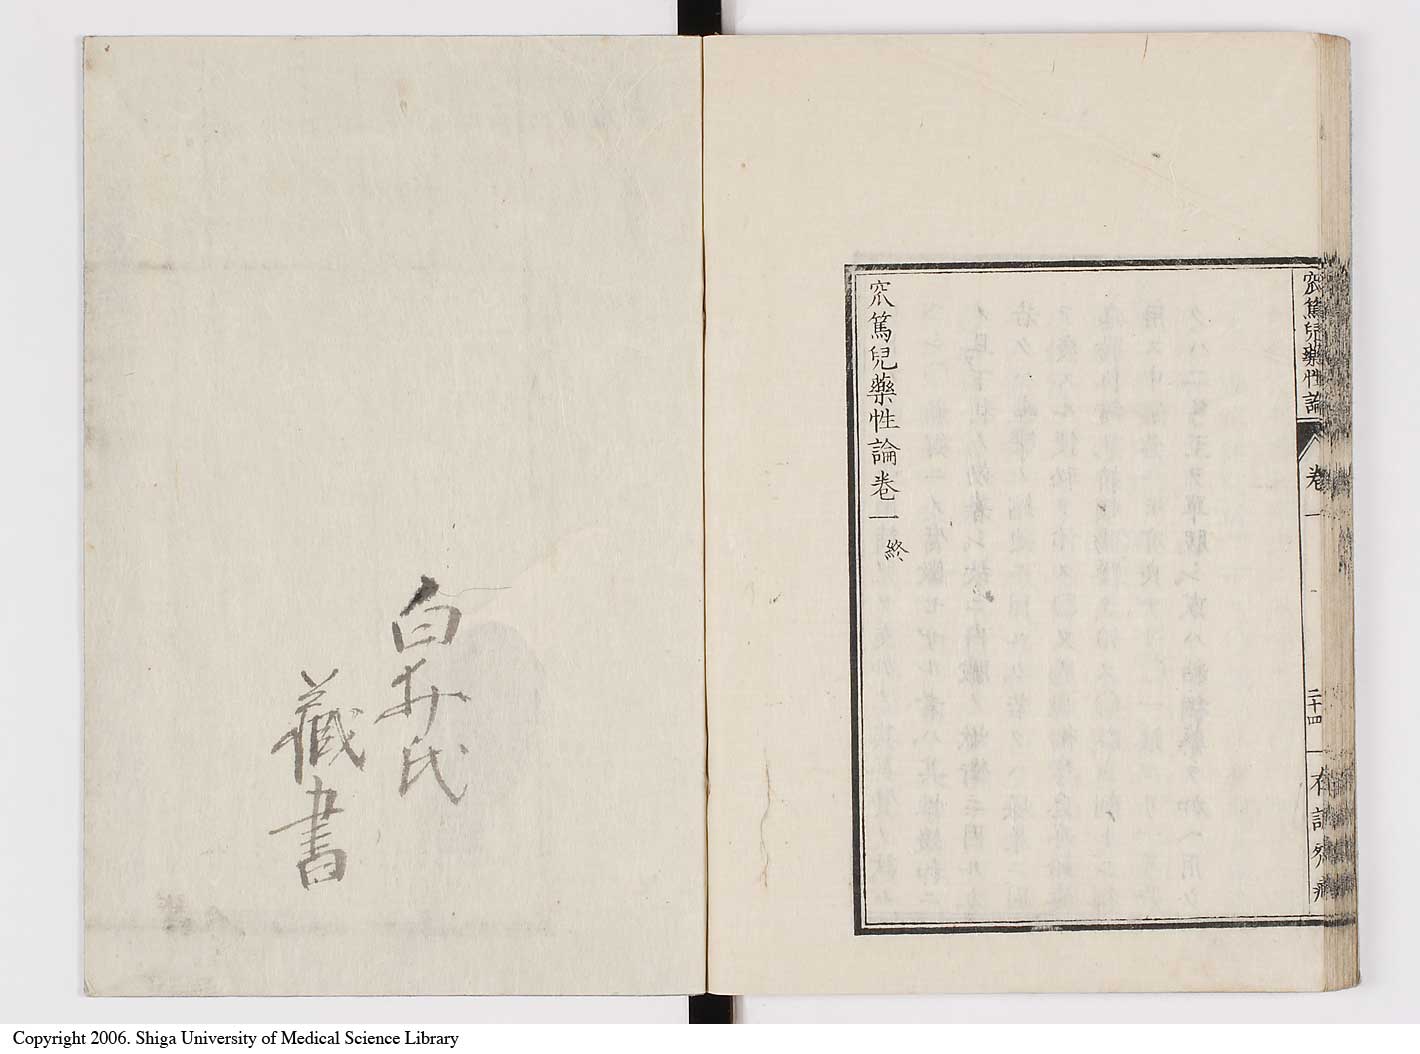 窊篤兒藥性論
卷一
二十四
窊篤兒藥性論卷一 終
白井氏
藏書
Copyright 2006. Shiga University of Medical Science Library